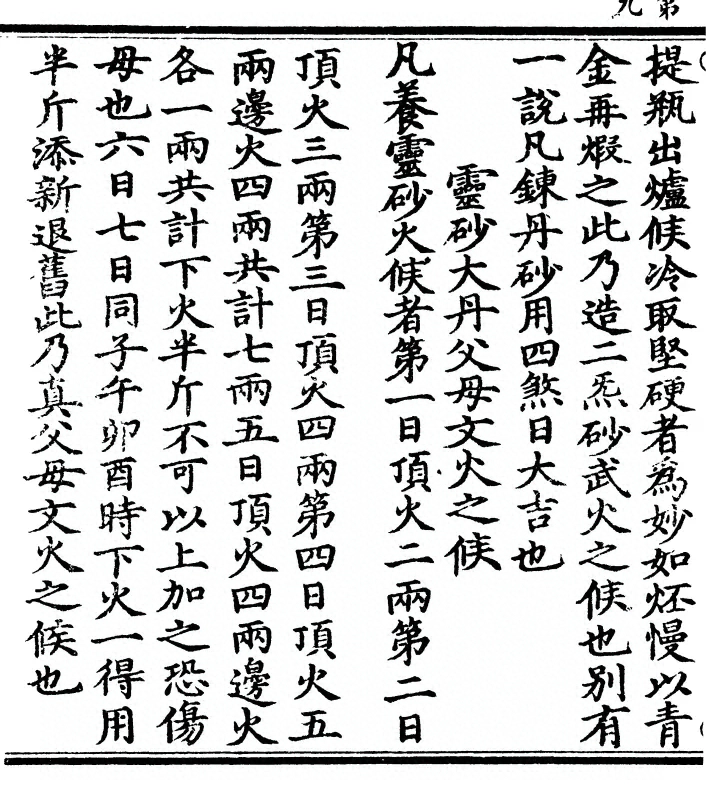 第九
提瓶出爐候冷取堅硬者為妙如坯慢以青
金再煆之此乃造二炁砂武火之候也別有
一說凡鍊丹砂用四煞日大吉也
靈砂大丹父母文火之候
凡養靈砂火候者第一日頂火二兩第二日
頂火三兩第三日頂火四兩第四日頂火五
兩邊火四兩共計七兩五日頂火四兩邊火
各一兩共計下火半斤不可以上加之恐傷
母也六日七日同子午卯酉時下火一得用
半斤添新退舊此乃真父母文火之候也